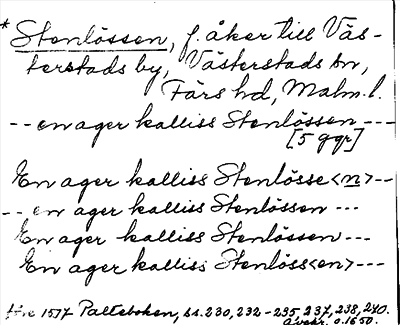 * Stenlössen, f. åker till Väs-
terstads by, Västerstads sn,
Färs hd, Malm. l.
-- en ager kalliss Stenlössen ---
[5 ggr]
En ager kalliss Stenlösse<n> --
-- en ager kalliss Stenlössen ---
En ager kalliss Stenlössen ---
En ager kalliss Stenlöss<en> ---
1577 Palteboken, ss. 230, 232-235, 237, 238, 240.
Avskr. o. 1650.